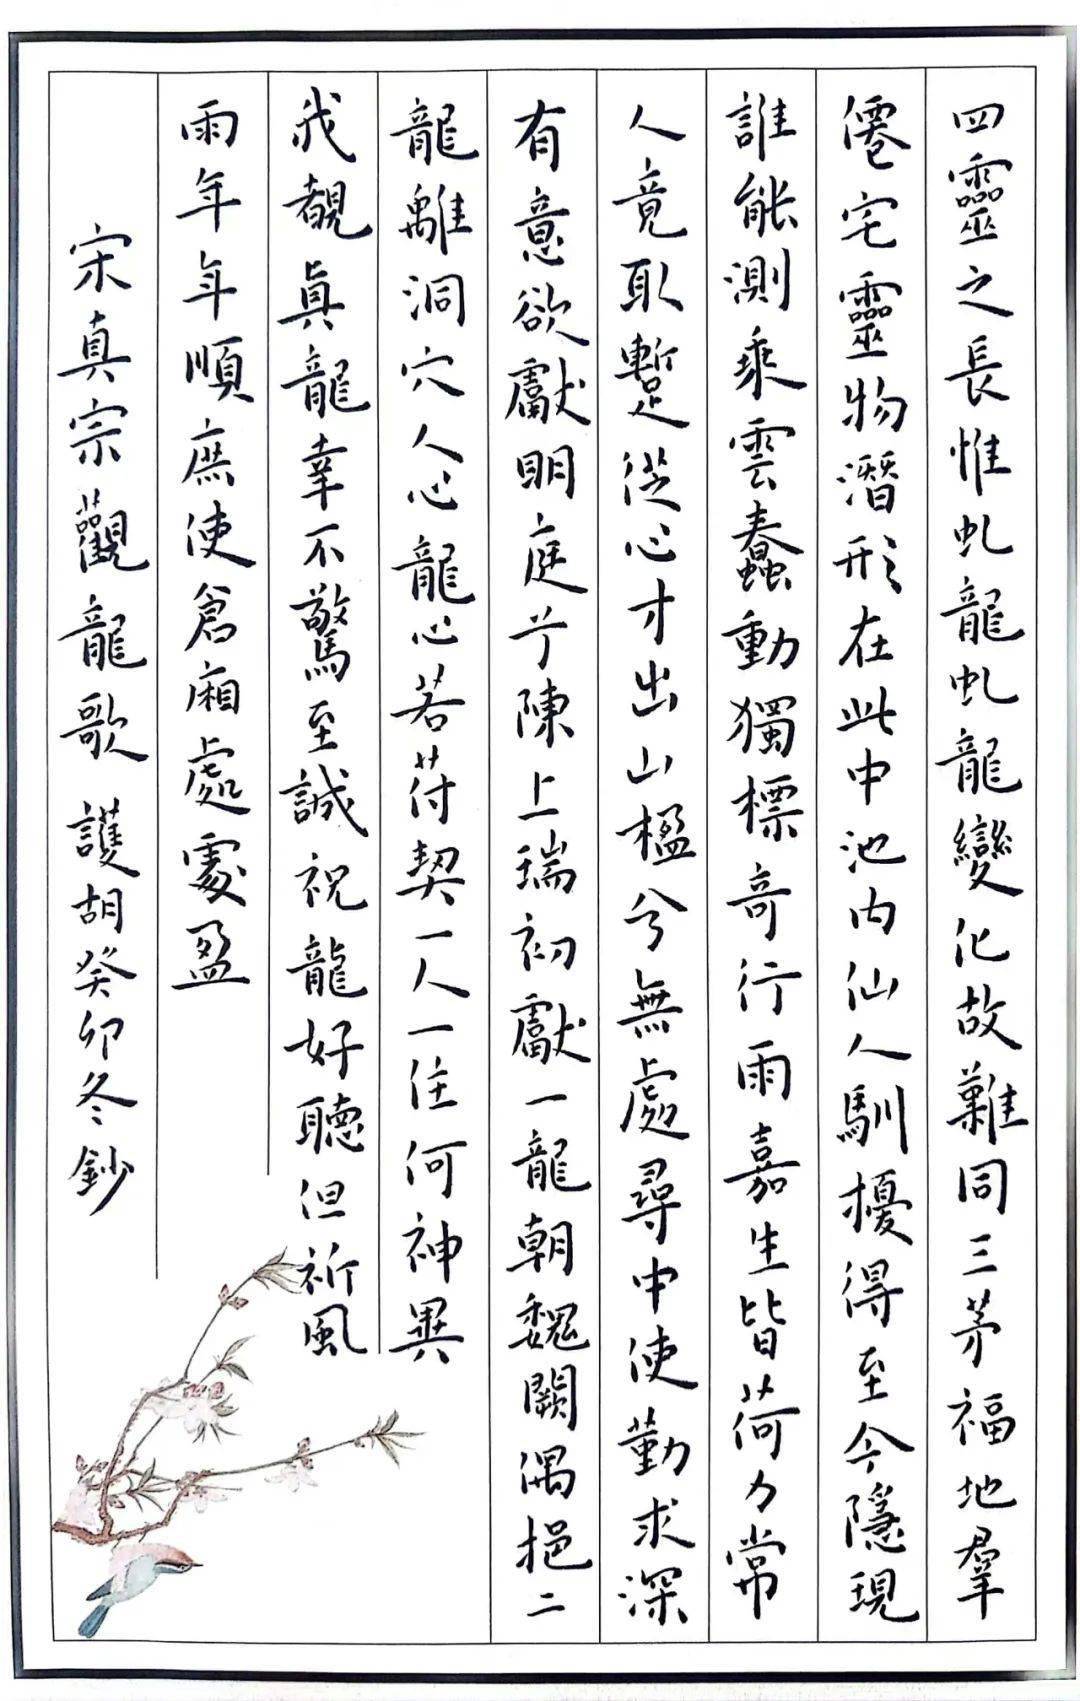 四靈之長惟虬龍虬龍變化故難同三茅福地羣
僊宅靈物潛形在此中池内仙人馴擾得至今隱現
誰能測乘雲蠢動獨標奇行雨嘉生皆荷力常
人竟取蹔從心才出山楹兮無處尋中使勤求深
有意欲獻明庭兮陳上瑞初獻一龍朝魏闕偶挹二
龍離洞穴人心龍心若苻契一人一任何神異
我覩眞龍幸不驚至誠祝龍龍好聽但祈風
雨年年順庶使倉廂處處盈
宋真宗觀龍歌 護胡癸卯冬鈔